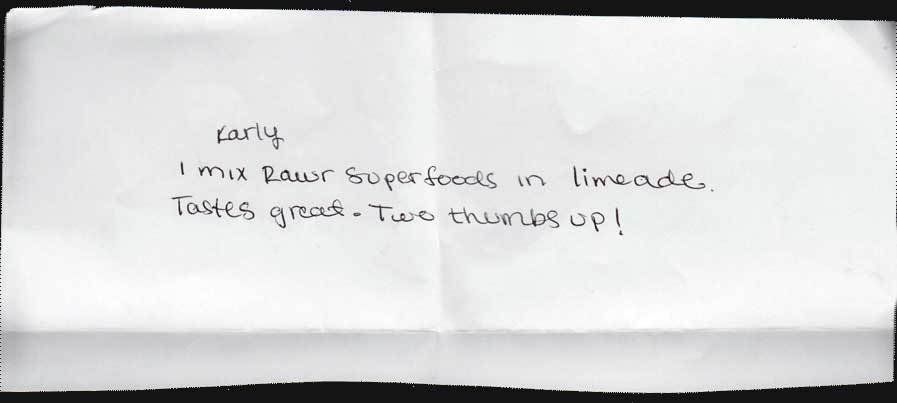 Karly
I mix Rawr Superfoods in limeade.
Tastes great. Two thumbs up!